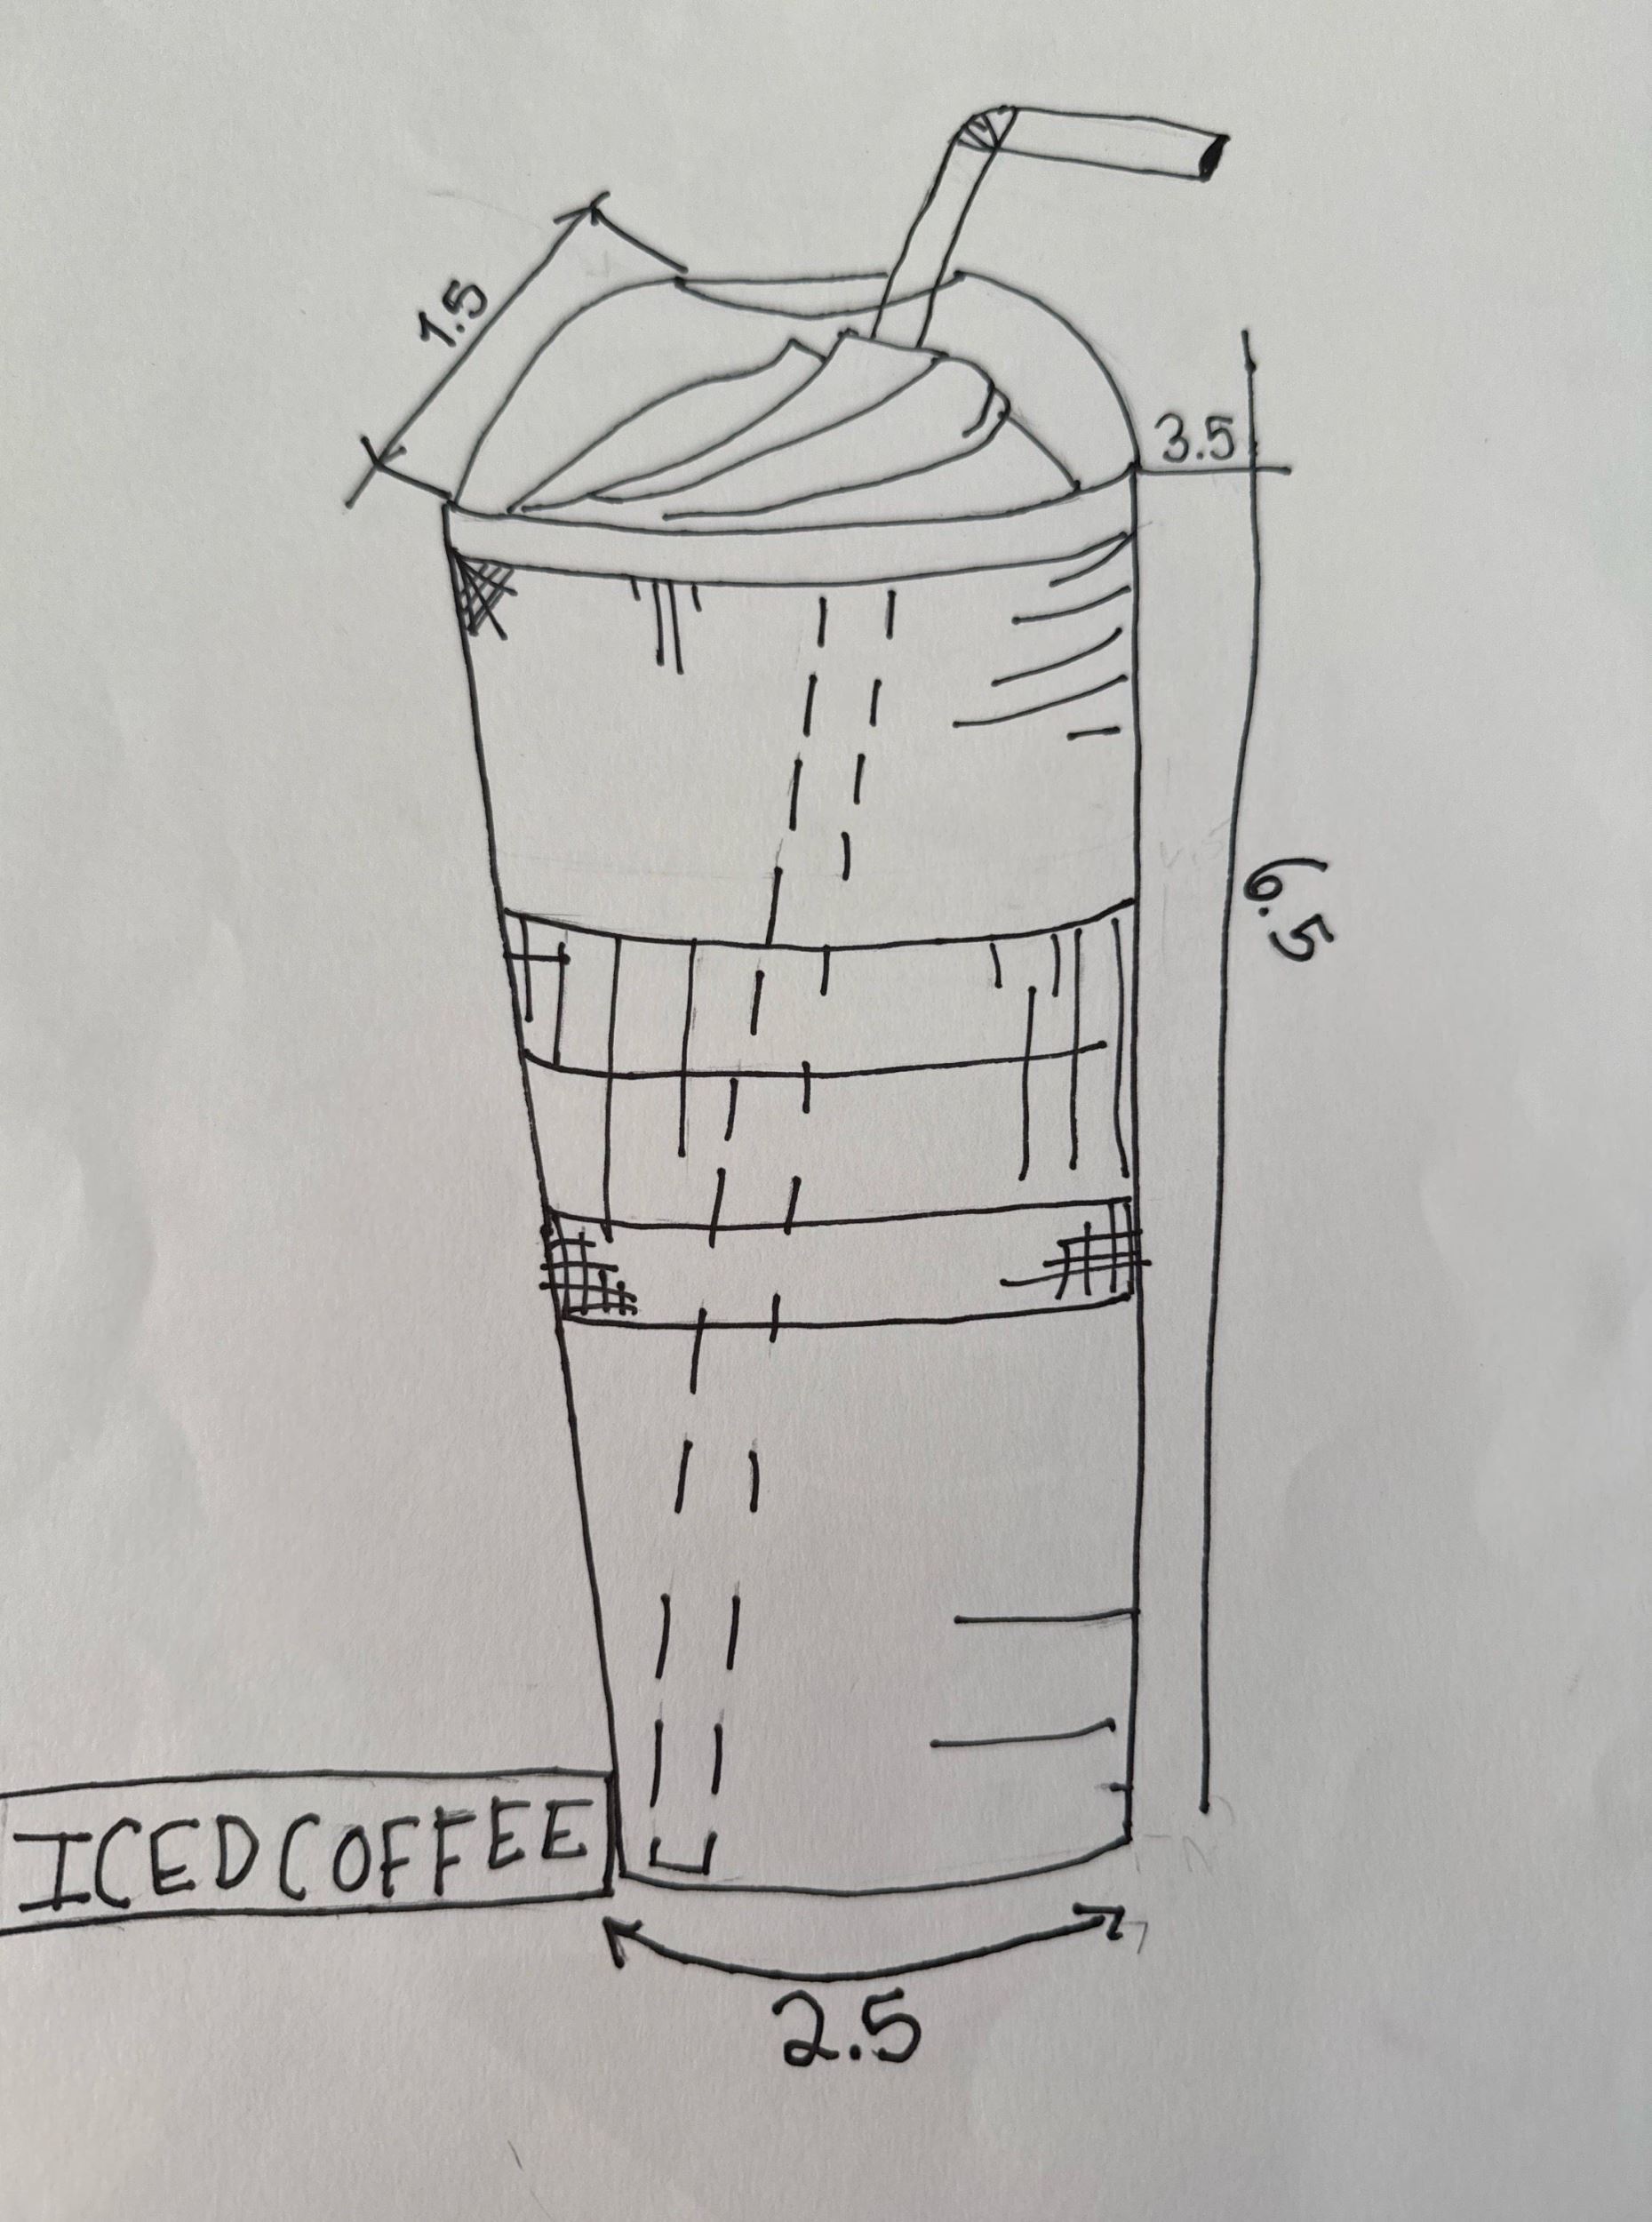 1.5
3.5
6.5
ICED COFFEE
2.5